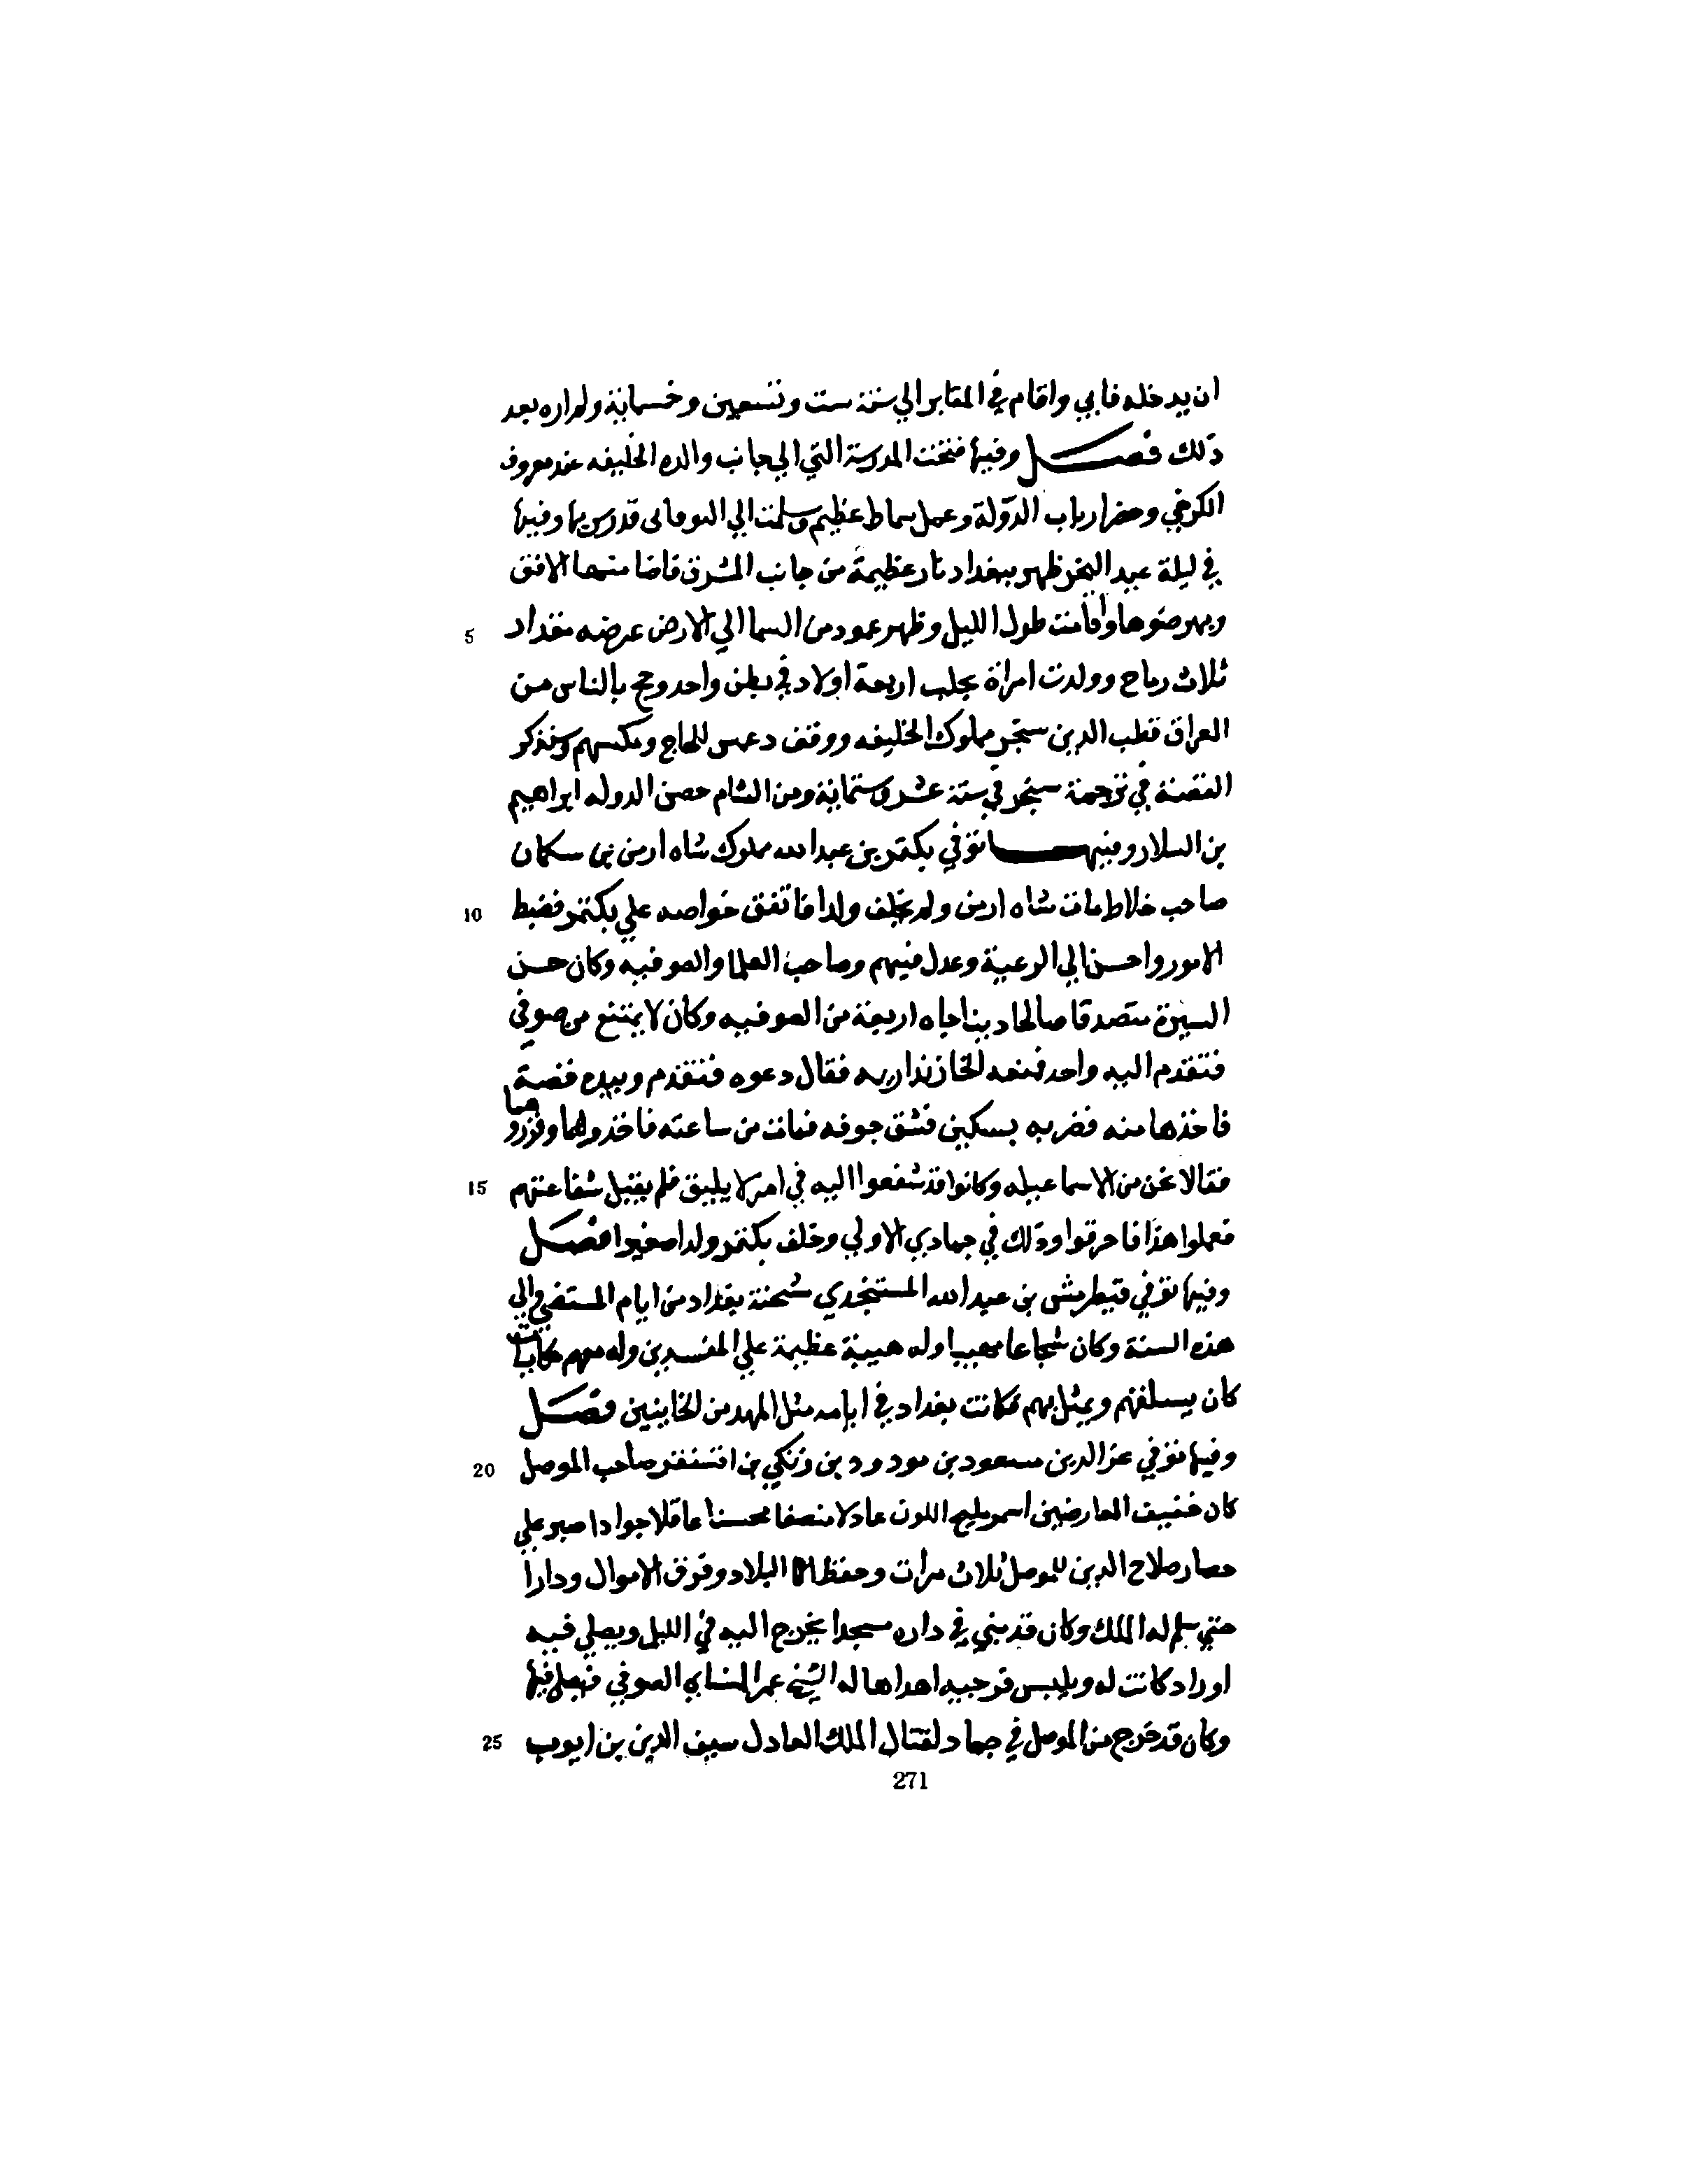 ان يدخله فابي واقام في المقابر الي سنة ست وتسعين وخسماية ولم اره بعد
ذلك فصل وفيها فتحت المدرسة التي الي جانب والده الخليفه عند معروف
الكرخي وحضر ارباب الدولة وعمل سماط عظيم وسلمت الي قدرس بها وفيها
في ليلة عيد النحر ظهر ببغداد نار عظيمة من جانب المشرق فاضا منها الافق
وبهر ضوها واقامت طول الليل وظهر عمود من السما الي الارض عرضه مقداد 5
ثلاث رماح وولدت امراة بحلب اربعة اولاد في بطن واحد وحج بالناس من
العراق قطب الدين سنجر مملوك الخليفه ووقف دعس للحاج ومكسهم وسنذكر
القصة في ترجمة سنجر في سنة عشر وستماية ومن الشام حصن الدوله ابراهيم
بن السلار وفيها توفي بكتمر بن عبد الله مملوك شاه ارمن بن سكمان
صاحب خلاط مات شاه ارمن ولم يخلف ولدا فاتفق خواصه علي بكتمر فضبط 10
الامور واحسن الي الرعية وعدل فيهم وصاحب العلما والصوفيه وكان حسن
السيرة متصدقا صالحا دينا جاه اربعة من الصوفيه وكان لا يمتنع من صوفي
فتقدم اليه واحد فمنعه الخازنداريه فقال دعوه فتقدم وبيده قصة
فاخذها منه فضربه بسكين فشق جوفه فمات من ساعته فاخذوهما وقررو هما
فقالا نحن من الاسماعيله وكانوا قد شفعوا اليه في امر لا يليق فلم يقبل شفاعتهم 15
فعملوا هذا فاحرقوا وذلك في جمادي الاولي وخلف بكتمر ولدا صغيرا فصل
وفيها توفي قتيطرمش بن عبد الله المستنجدي شحنة بغداد من ايام المستضي والي
هذه السنة وكان شجاعا مهيبا وله هيبة عظيمة علي المفسدين وله معهم حكايات
كان يسلقهم ويمثل بهم فكانت بغداد في ايامه مثل المهد من الخاينين فصل
وفيها توفي عز الدين مسعود بن مودود بن زنكي بن اقسنقر صاحب الموصل 20
كان خفيف العارضين اسمر مليح اللون عادلا منصفا محسنا عاقلا جوادا صبر علي
حصار صلاح الدين للموصل ثلاث مرات وحفظ البلاد وفرق الاموال ودارا
حتي سلم له الملك وكان قد بني في داره مسجدا يخرج اليه في الليل ويصلي فيه
اوراد كانت له ويلبس فرجيه اهداها له الشيخ عمر النساي الصوفي فيصلي فيها
وكان قد خرج من الموصل في جماد لقتال الملك العادل سيف الدين بن ايوب 25
271